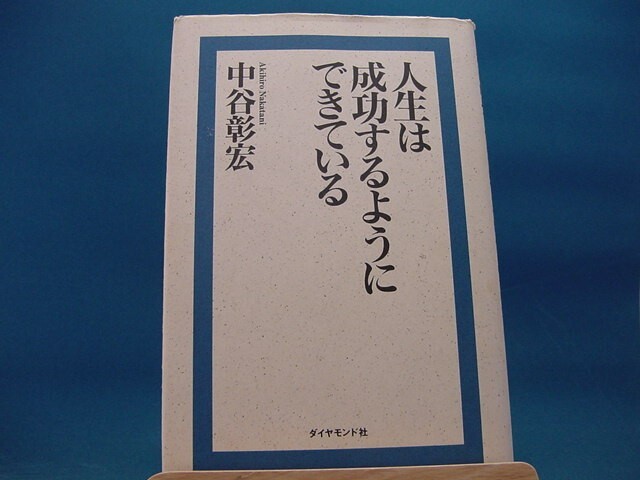 人生は
成功するように
できている
中谷彰宏
Akihiro Nakatani
ダイヤモンド社